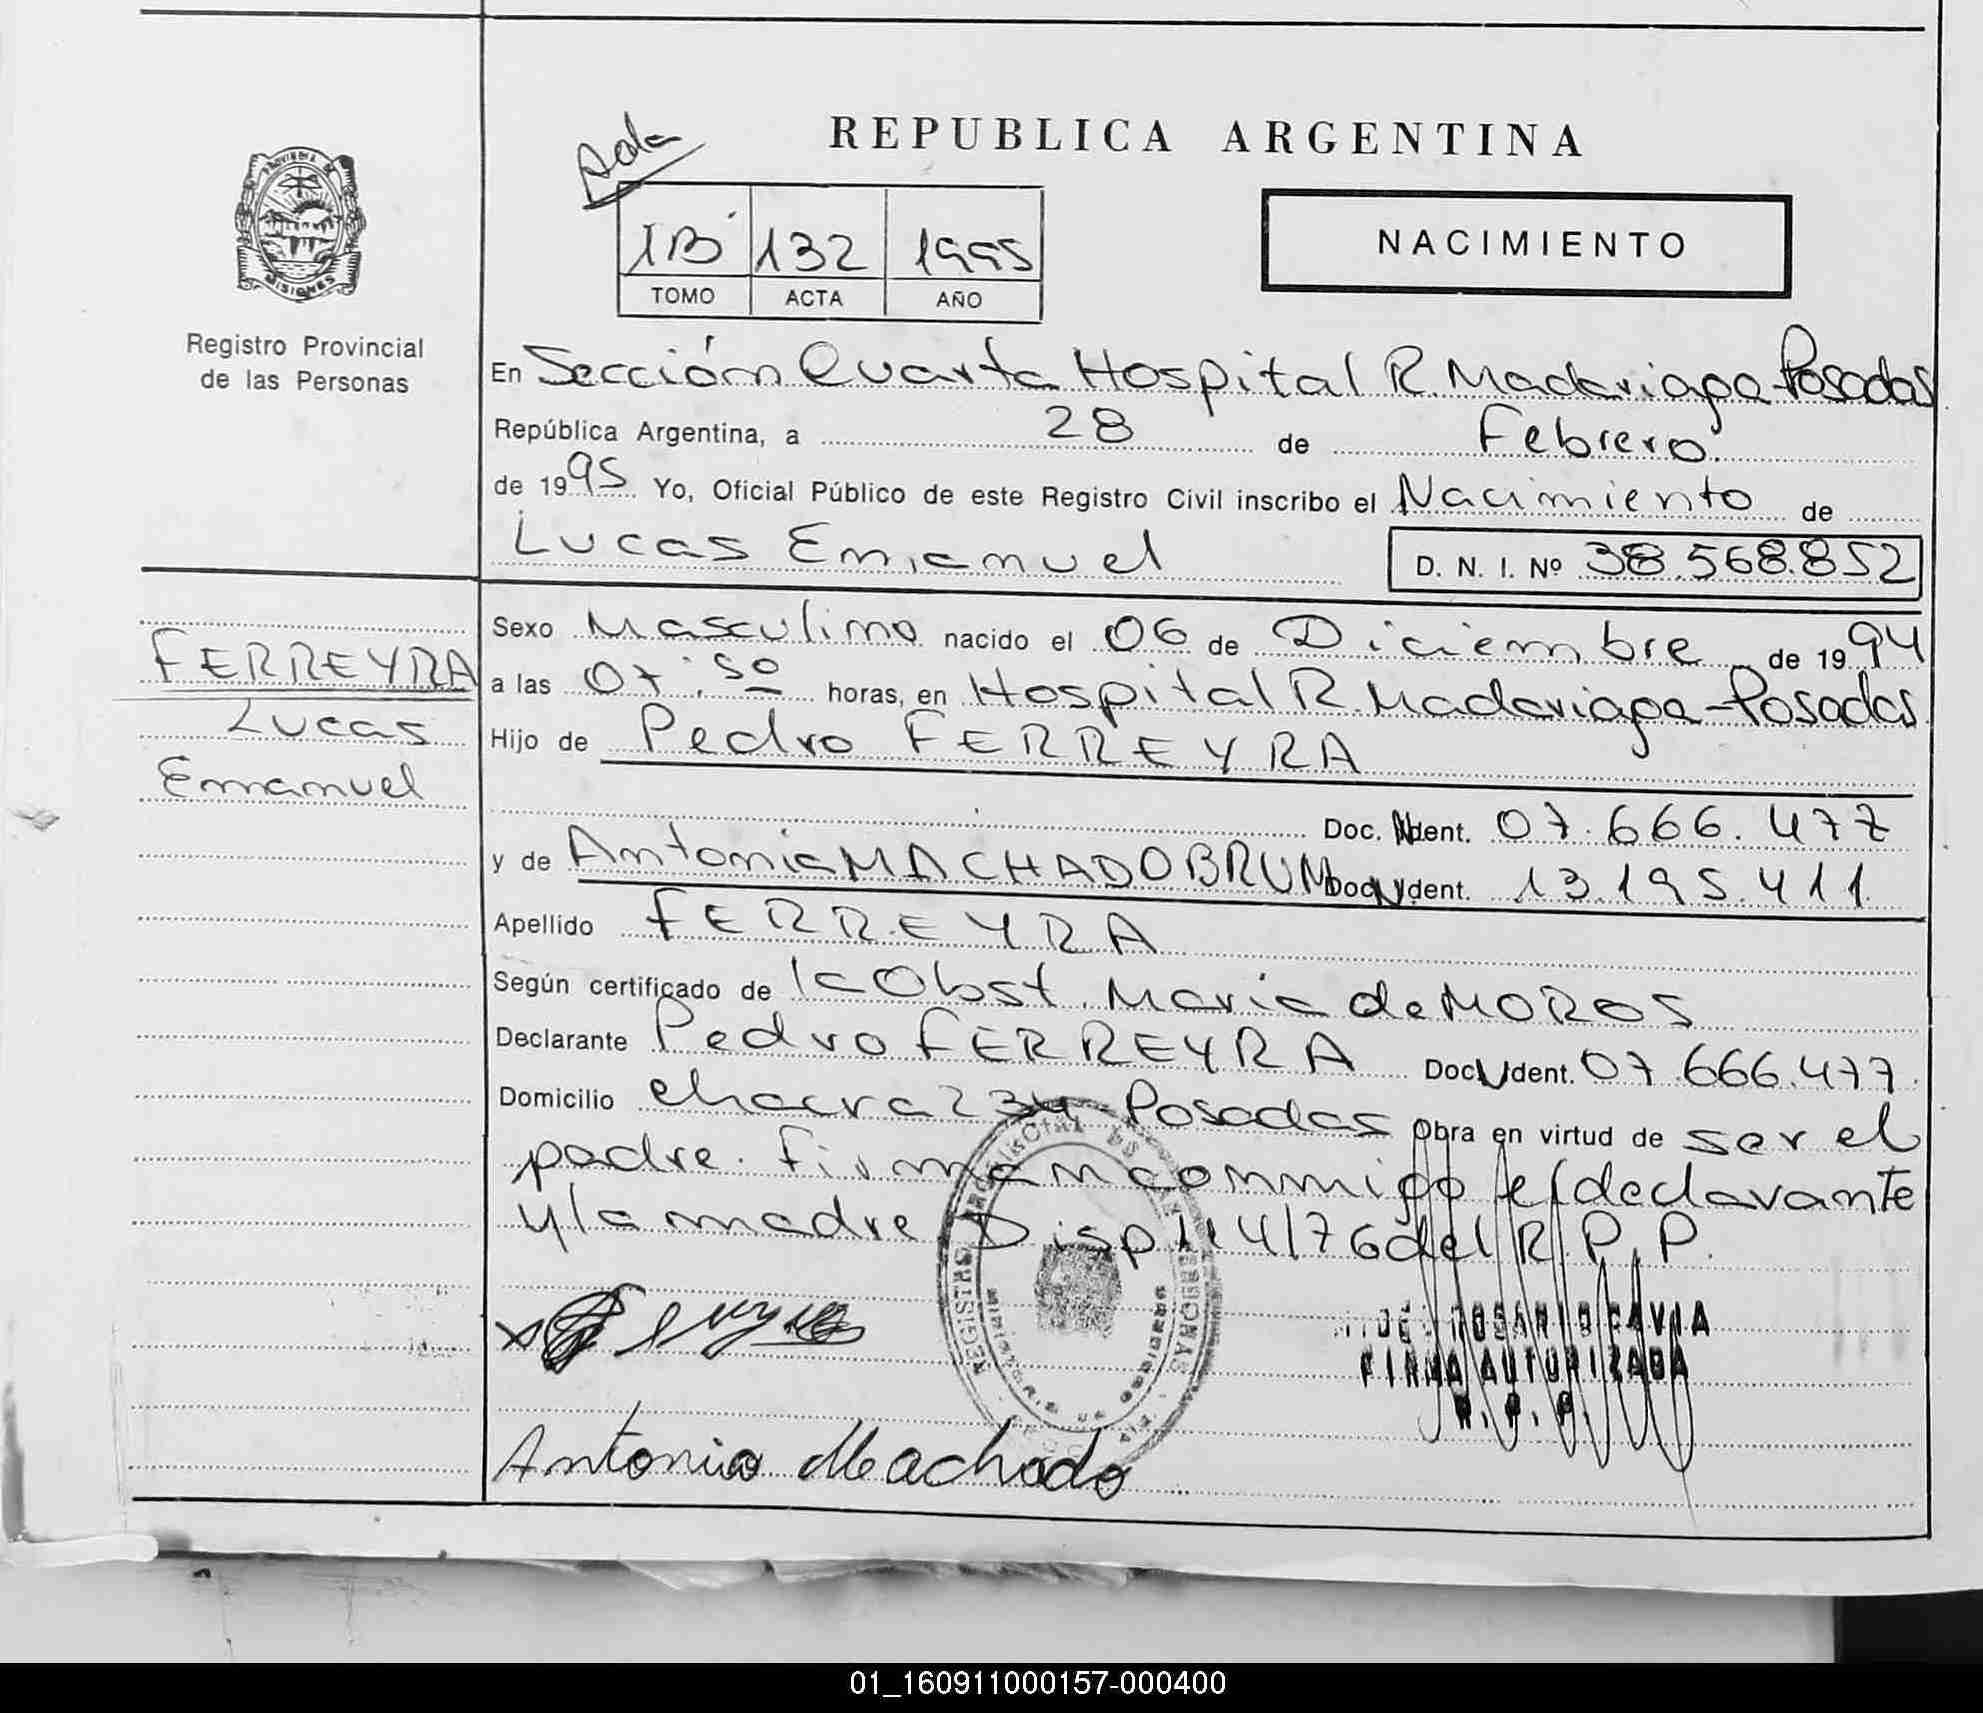 REPUBLICA ARGENTINA
PROVINCIA DE
MISIONES
Registro Provincial
de las Personas
1B 132 1995
TOMO ACTA AÑO
NACIMIENTO
En Sección Cuarta Hospital R. Madariaga-Posadas
República Argentina, a 28 de Febrero
de 1995 Yo, Oficial Público de este Registro Civil inscribo el Nacimiento de
Lucas Emanuel D. N. I. Nº 38.568.852
FERREYRA
Lucas
Emanuel
Sexo Masculino nacido el 06 de Diciembre de 1994
a las 07:50 horas, en Hospital R. Madariaga-Posadas
Hijo de Pedro FERREYRA
Doc. Ident. 07.666.477
y de Antonia MACHADO BRUM Doc. Ident. 13.195.411
Apellido FERREYRA
Según certificado de la Obst. Maria de MOROS
Declarante Pedro FERREYRA Doc. Ident. 07.666.477
Domicilio chacra 234 Posadas Obra en virtud de ser el
padre. Firman conmigo el declarante
y la madre Disp 114/76 del R.P.P.
ROSARIO GAVIA
FIRMA AUTORIZADA
R. P. P.
Antonia Machado
01_160911000157-000400